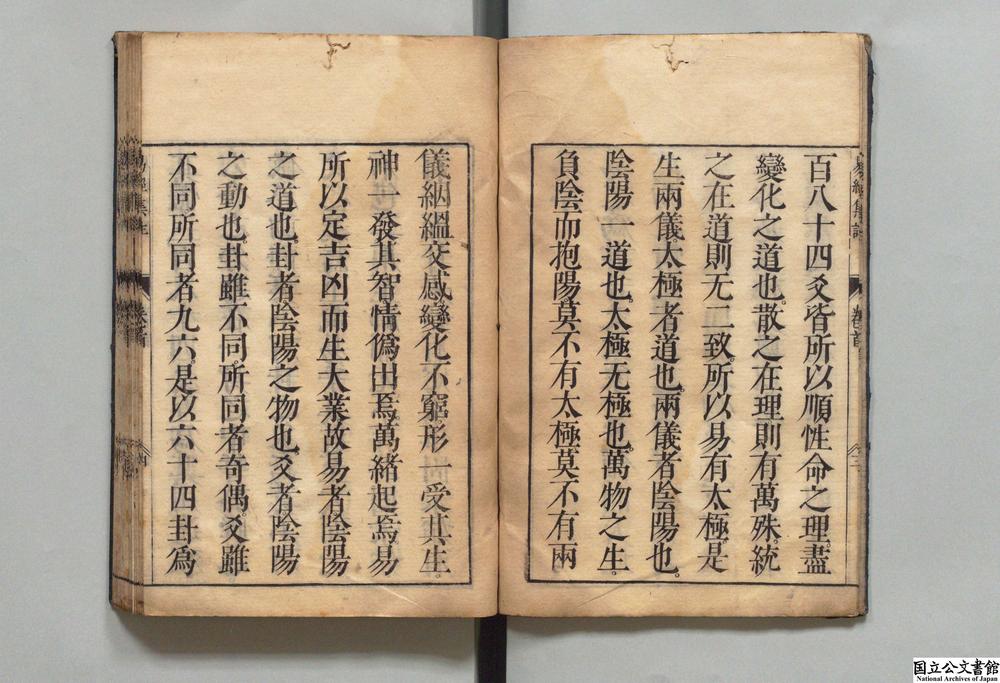 百八十四爻皆所以順性命之理盡
變化之道也。散之在理則有萬殊。統
之在道則无二致。所以易有太極。是
生兩儀。太極者道也。兩儀者陰陽也。
陰陽一道也。太極无極也。萬物之生。
負陰而抱陽莫不有太極莫不有兩
儀絪縕交感變化不窮形一受其生。
神一發其智情僞出焉。萬緒起焉。易
所以定吉凶而生大業故易者陰陽
之道也。卦者陰陽之物也。爻者陰陽
之動也。卦雖不同。所同者奇偶。爻雖
不同所同者九六是以六十四卦爲
卷首
国立公文書館
National Archives of Japan